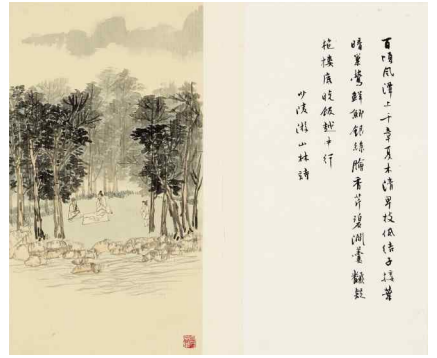 百頃風潭上千章夏木清卑枝低結子接葉
暗巢鶯鮮鯽銀絲膾香芹碧澗羹翻疑
柂樓底晚飯越中行
少陵游山林詩